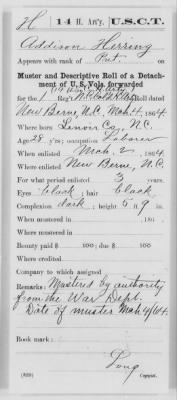 H | 14 H. Art'y. | U.S.C.T.
Addison Herring
Appears with rank of Pvt. on
Muster and Descriptive Roll of a Detach-
ment of U. S. Vols. forwarded
for the Reg't Roll dated
New Berne, N.C. Mch. 4, 1864
Where born Lenoir Co., N.C.
Age 28 y'rs; occupation Laborer
When enlisted Mch. 2, 1864
Where enlisted New Berne, N.C.
For what period enlisted 3 years.
Eyes black; hair black
Complexion dark; height 5 ft. 9 in.
When mustered in , 186 .
Where mustered in
Bounty paid $ 100; due $ 100
Where credited
Company to which assigned
Remarks: Mustered by authority
from the War Dept.
Date of muster Mch 4/64.
Book mark:
Long
(339) Copyist.